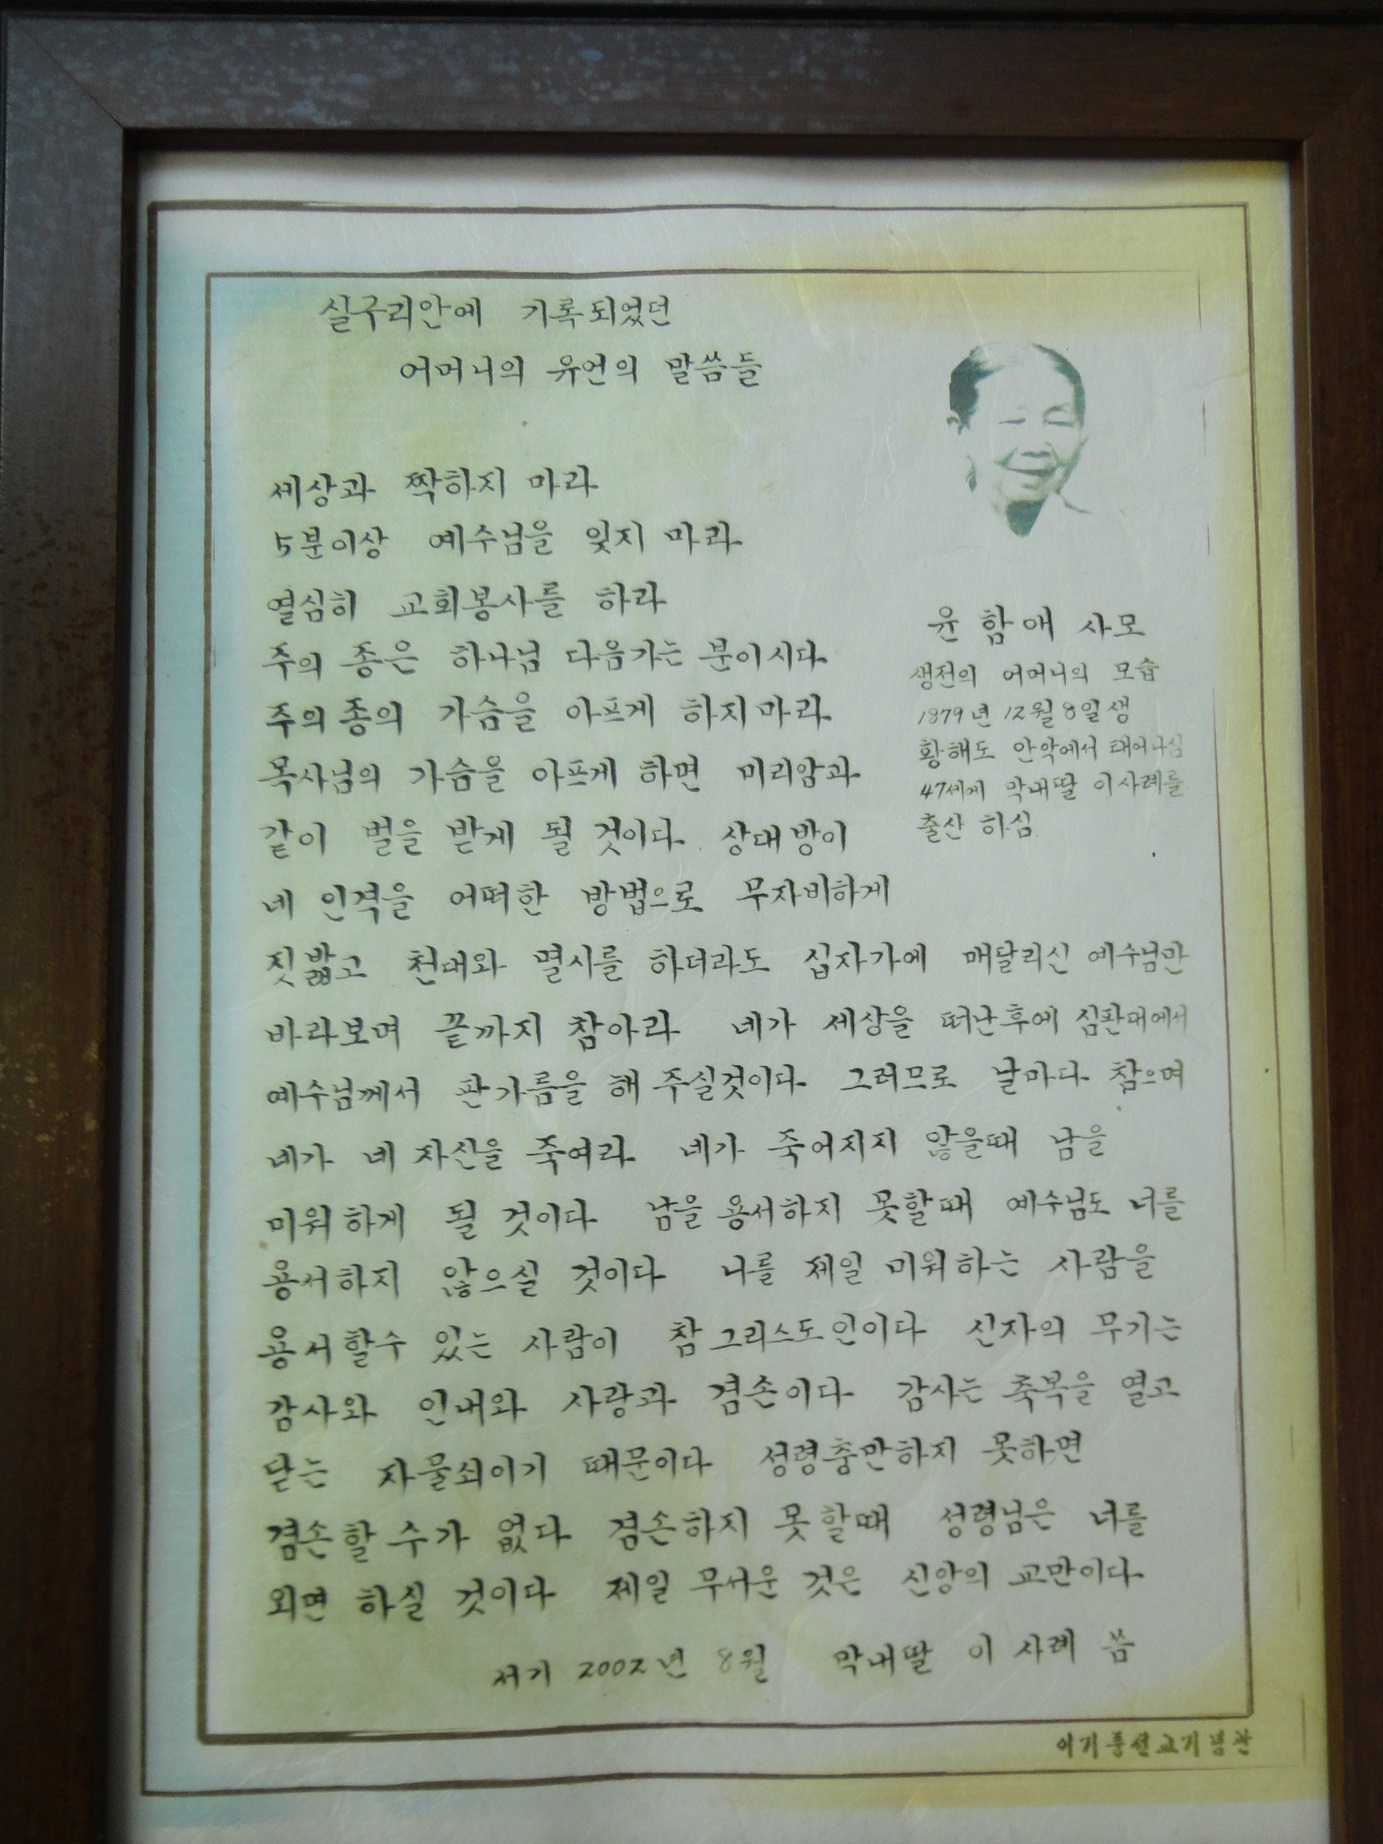 실구리안에 기록되었던
어머니의 유언의 말씀들
세상과 짝하지 마라
5분이상 예수님을 잊지 마라
열심히 교회봉사를 하라
주의 종은 하나님 다음가는 분이시다
주의 종의 가슴을 아프게 하지마라
목사님의 가슴을 아프게 하면 미리암과
같이 벌을 받게 될 것이다 상대방이
네 인격을 어떠한 방법으로 무자비하게
짓밟고 천대와 멸시를 하더라도 십자가에 매달리신 예수님만
바라보며 끝까지 참아라 네가 세상을 떠난후에 심판대에서
예수님께서 판가름을 해 주실것이다 그러므로 날마다 참으며
네가 네 자신을 죽여라 네가 죽어지지 않을때 남을
미워하게 될 것이다 남을 용서하지 못할때 예수님도 너를
용서하지 않으실 것이다 너를 제일 미워하는 사람을
용서할수 있는 사람이 참 그리스도인이다 신자의 무기는
감사와 인내와 사랑과 겸손이다 감사는 축복을 열고
닫는 자물쇠이기 때문이다 성령충만하지 못하면
겸손할 수가 없다 겸손하지 못할때 성령님은 너를
외면 하실 것이다 제일 무서운 것은 신앙의 교만이다
서기 2002년 8월 막내딸 이 사례 씀
윤함애 사모
생전의 어머니의 모습
1879년 12월 8일생
황해도 안악에서 태어나심
47세에 막내딸 이사례를
출산 하심
이기풍선교기념관